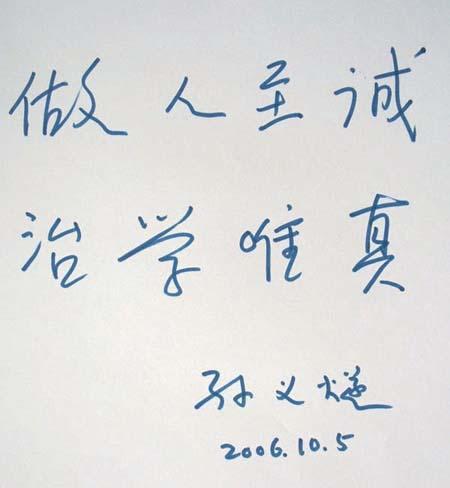 做人至诚
治学唯真
孙义燧
2006.10.5